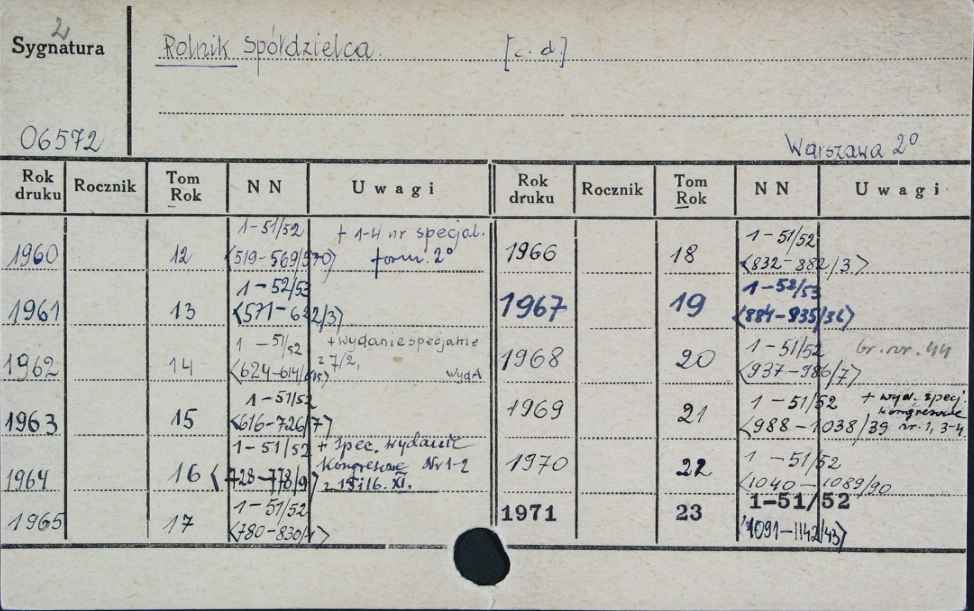 2
Sygnatura
Rolnik Spółdzielca. [c. d.]
06572
Warszawa 2°
Rok druku Rocznik Tom Rok NN Uwagi Rok druku Rocznik Tom Rok NN Uwagi
1960 12 1-51/52 <519-569/570> + 1-4 nr specjal. form. 2°
1961 13 1-52/53 <571-622/3>
1962 14 1-51/52 <624-614/615> + wydanie specjalne z 7/2,
1963 15 1-51/52 <616-726/7>
1964 16 1-51/52 <728-778/9> + spec. wydanie Kongresowe Nr 1-2 z 15 i 16. XI.
1965 17 1-51/52 <780-830/1>
1966 18 1-51/52 <832-882/3>
1967 19 1-52/53 <884-935/36>
1968 20 1-51/52 <937-986/7> br. nr. 44
1969 21 1-51/52 <988-1038/39 + wyd. specj. kongresowe nr. 1, 3-4
1970 22 1-51/52 <1040-1089/90
1971 23 1-51/52 <1091-1142/43>